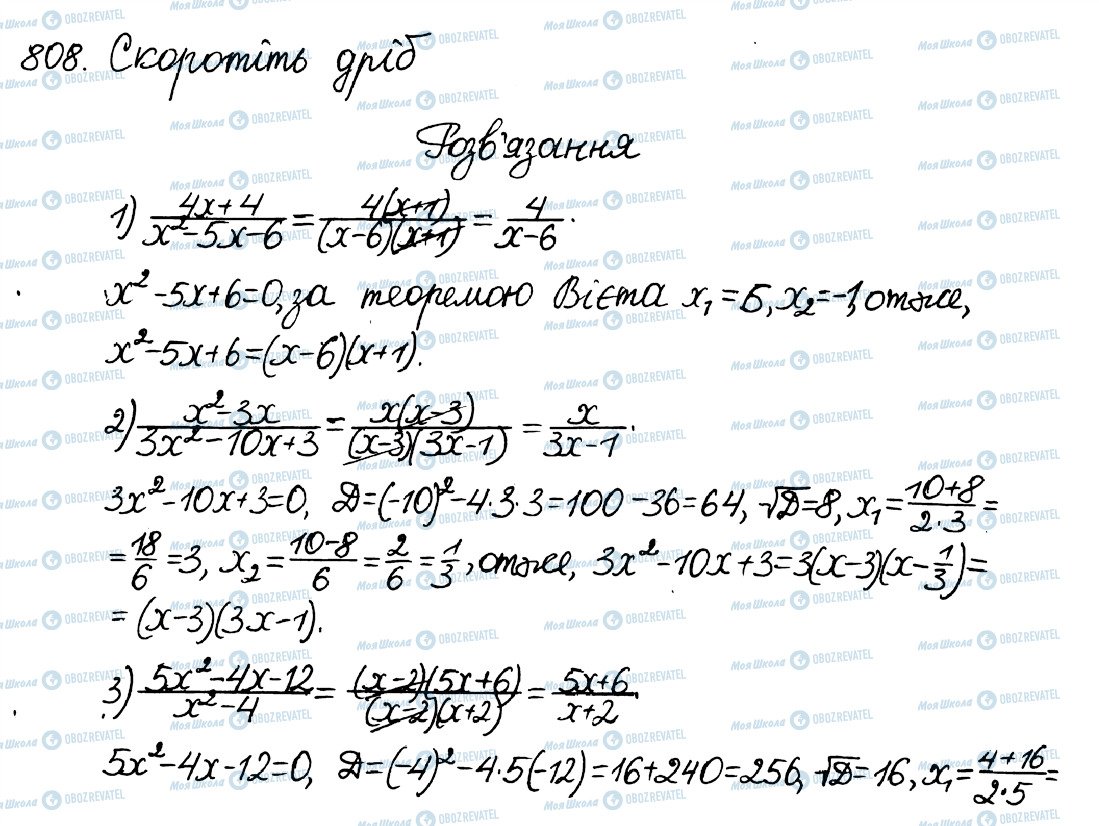 808. Скоротіть дріб
Розв'язання
1) (4x+4)/(x²-5x-6) = (4(x+1))/((x-6)(x+1)) = 4/(x-6).
x²-5x+6=0, за теоремою Вієта x₁=5, x₂=-1, отже,
x²-5x+6=(x-6)(x+1).
2) (x²-3x)/(3x²-10x+3) = (x(x-3))/((x-3)(3x-1)) = x/(3x-1).
3x²-10x+3=0, D=(-10)²-4·3·3=100-36=64, √D=8, x₁=(10+8)/(2·3)=
=18/6=3, x₂=(10-8)/6=2/6=1/3, отже, 3x²-10x+3=3(x-3)(x-1/3)=
=(x-3)(3x-1).
3) (5x²-4x-12)/(x²-4) = ((x-2)(5x+6))/((x-2)(x+2)) = (5x+6)/(x+2).
5x²-4x-12=0, D=(-4)²-4·5(-12)=16+240=256, √D=16, x₁=(4+16)/(2·5)=